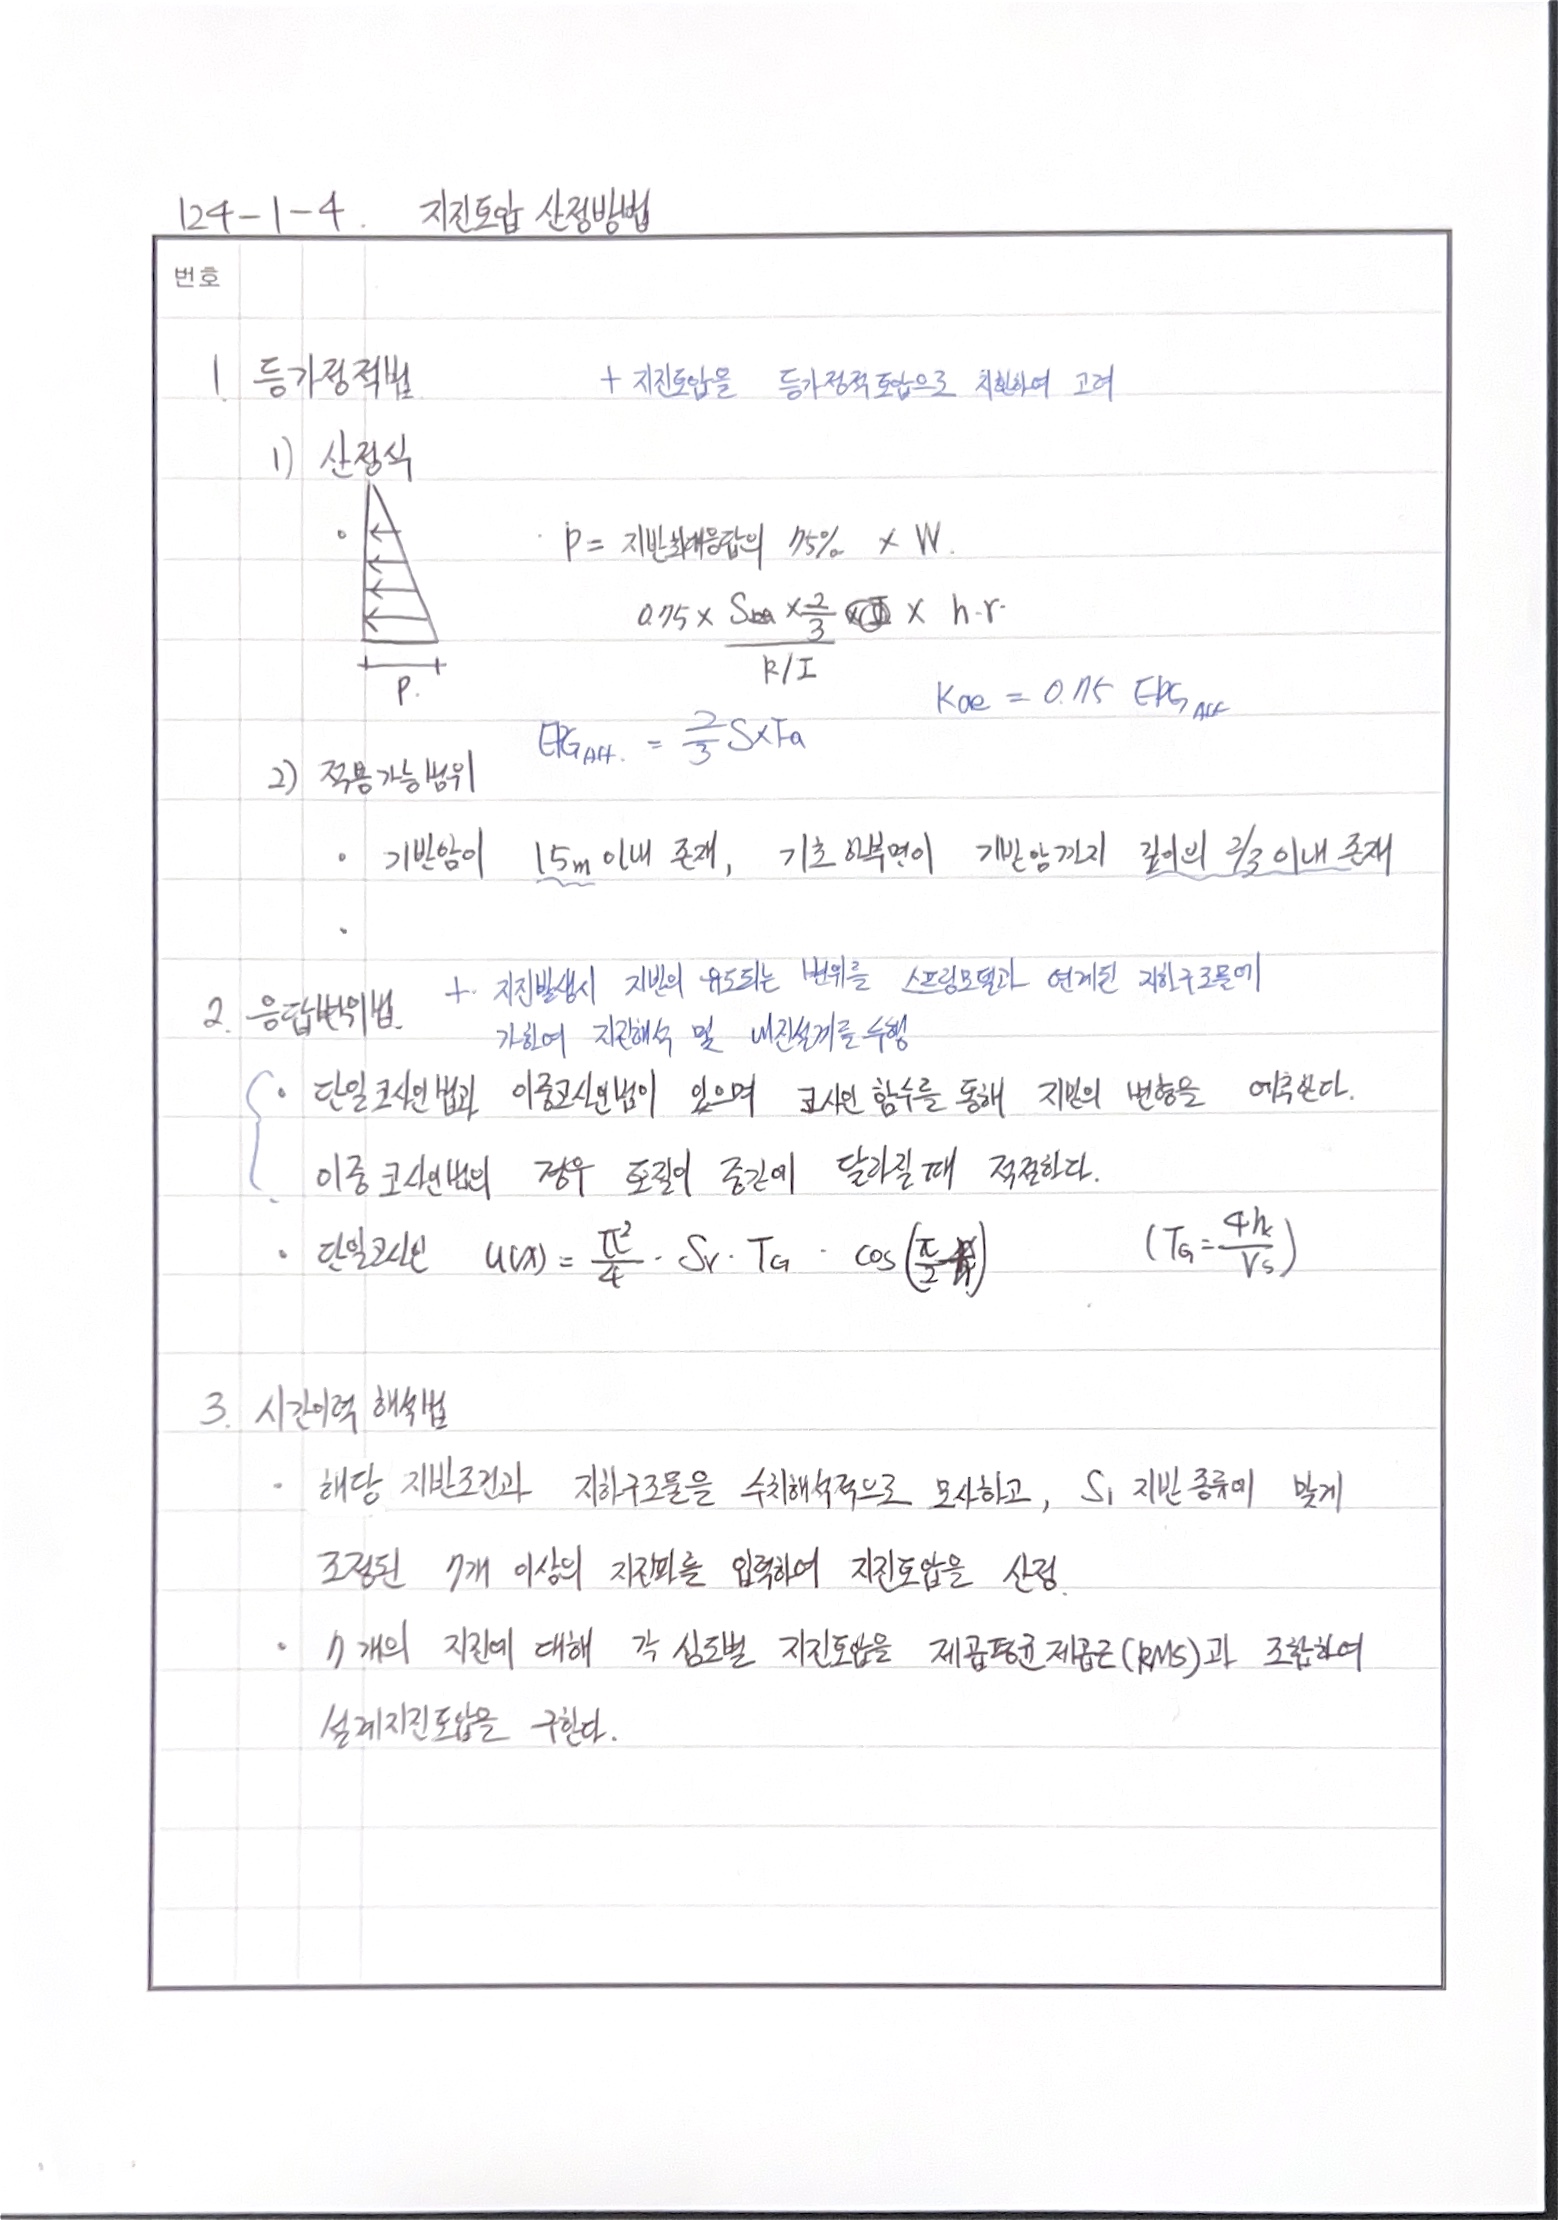 124-1-4. 지진토압 산정방법
번호
1. 등가정적법 + 지진토압을 등가정적토압으로 치환하여 고려
1) 산정식
· P = 지반최대응답의 75% × W.
0.75 × S × 2/3 × h·r.
R/I
P.
Kae = 0.75 EPG Aff
EPG Aff. = 2/3 S×Fa
2) 적용가능범위
· 기반암이 15m 이내 존재, 기초 하부면이 기반암까지 깊이의 2/3 이내 존재
·
+ 지진발생시 지반의 유도되는 변위를 스프링모델과 연계된 지하구조물에
2. 응답변위법.
가하여 지진해석 및 내진설계를 수행
· 단일코사인법과 이중코사인법이 있으며 코사인 함수를 통해 지반의 변형을 예측한다.
이중 코사인법의 경우 토질이 중간에 달라질 때 적절하다.
· 단일코사인 u(x) = π²/4 · Sv · TG · cos(π/2 ) (TG = 4h/Vs)
3. 시간이력 해석법
· 해당 지반조건과 지하구조물을 수치해석적으로 모사하고, S1 지반 종류에 맞게
조정된 7개 이상의 지진파를 입력하여 지진토압을 산정.
· 7개의 지진에 대해 각 심도별 지진토압을 제곱평균제곱근(RMS)과 조합하여
설계지진토압을 구한다.